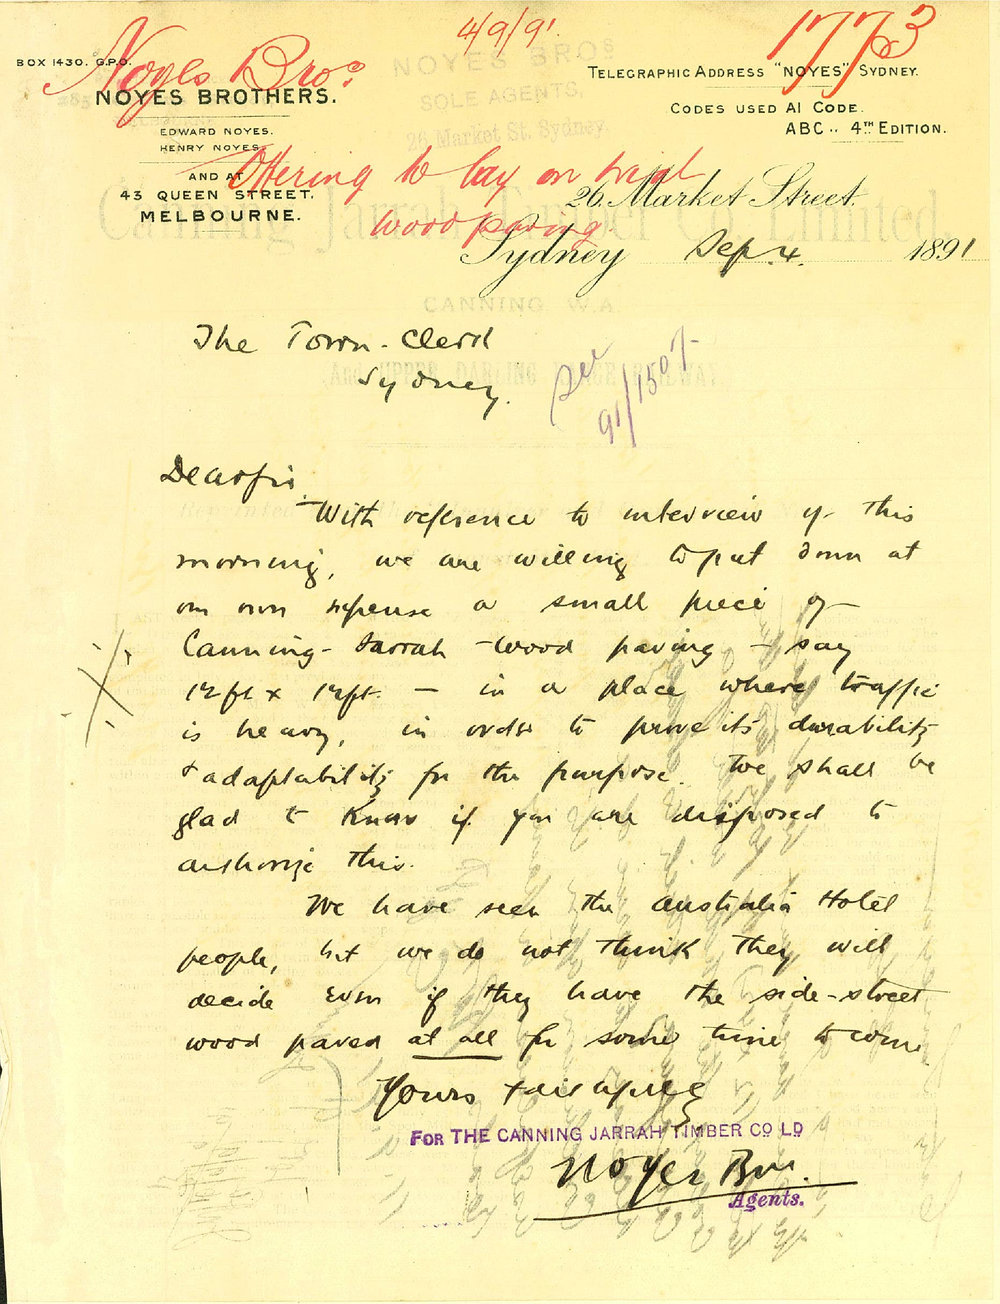 4/9/91
1773
BOX 1430. G.P.O.
Noyes Bros
NOYES BROS
SOLE AGENTS,
26 Market St. Sydney
NOYES BROTHERS.
EDWARD NOYES.
HENRY NOYES.
AND AT
43 QUEEN STREET.
MELBOURNE.
TELEGRAPHIC ADDRESS "NOYES" SYDNEY.
CODES USED A1 CODE.
ABC .. 4TH EDITION.
Offering to lay on trial
wood paving
26, Market Street.
Sydney Sep. 4. 1891
Canning Jarrah Timber Co. Limited.
CANNING. W.A.
And UPPER DARLING RANGE RAILWAY.
The Town-Clerk
Sydney.
See
91/1507
Dear Sir
With reference to interview of this
morning, we are willing to put down at
our own expense a small piece of
Canning-Jarrah-wood paving - say
12ft x 12ft. - in a place where traffic
is heavy, in order to prove its durability
+ adaptability for the purpose. We shall be
glad to know if you are disposed to
authorize this.
We have seen the Australia Hotel
people, but we do not think they will
decide even if they have the side-street
wood paved at all for some time to come
Yours faithfully
FOR THE CANNING JARRAH TIMBER CO LD
Noyes Bros.
Agents.